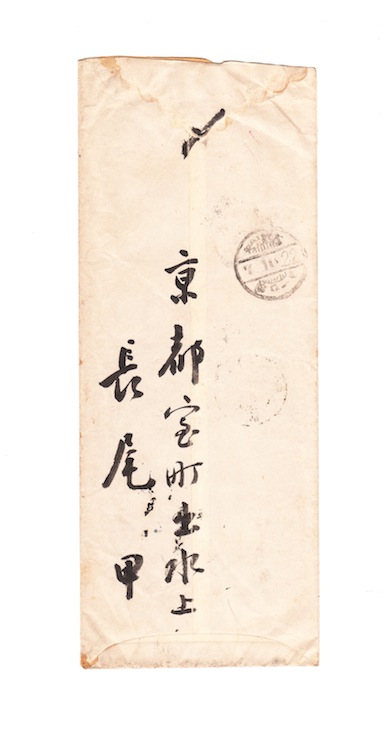 〆
京都室町出水上
長尾甲